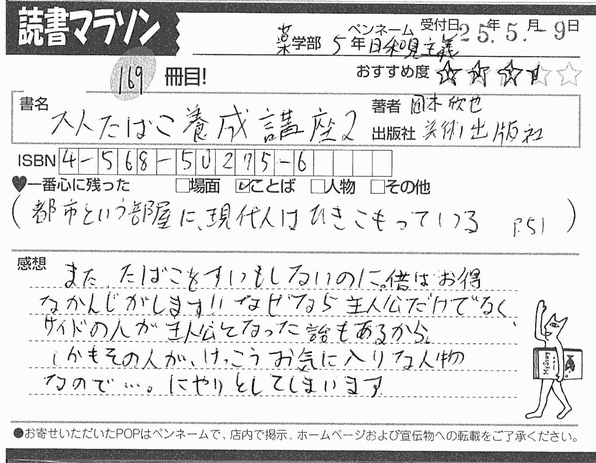 読書マラソン
ペンネーム 受付日 25年 5.月-9日
薬学部 5年 日和見主義
169冊目! おすすめ度 ★★★★☆
書名 大人たばこ養成講座2 著者 国木欣也
出版社 美術出版社
ISBN 4-568-50275-6
♥一番心に残った □場面 ☑ことば □人物 □その他
(都市という部屋に、現代人はひきこもっている P.51)
感想 また、たばこをすいもしないのに。借はお得
なかんじがします!! なぜなら 主人公だけでなく、
サイドの人が主人公となった話もあるから。
しかもその人が、けっこうお気に入りな人物
なので…。にやりとしてしまいます
●お寄せいただいたPOPはペンネームで、店内で掲示、ホームページおよび宣伝物への転載をご了承ください。